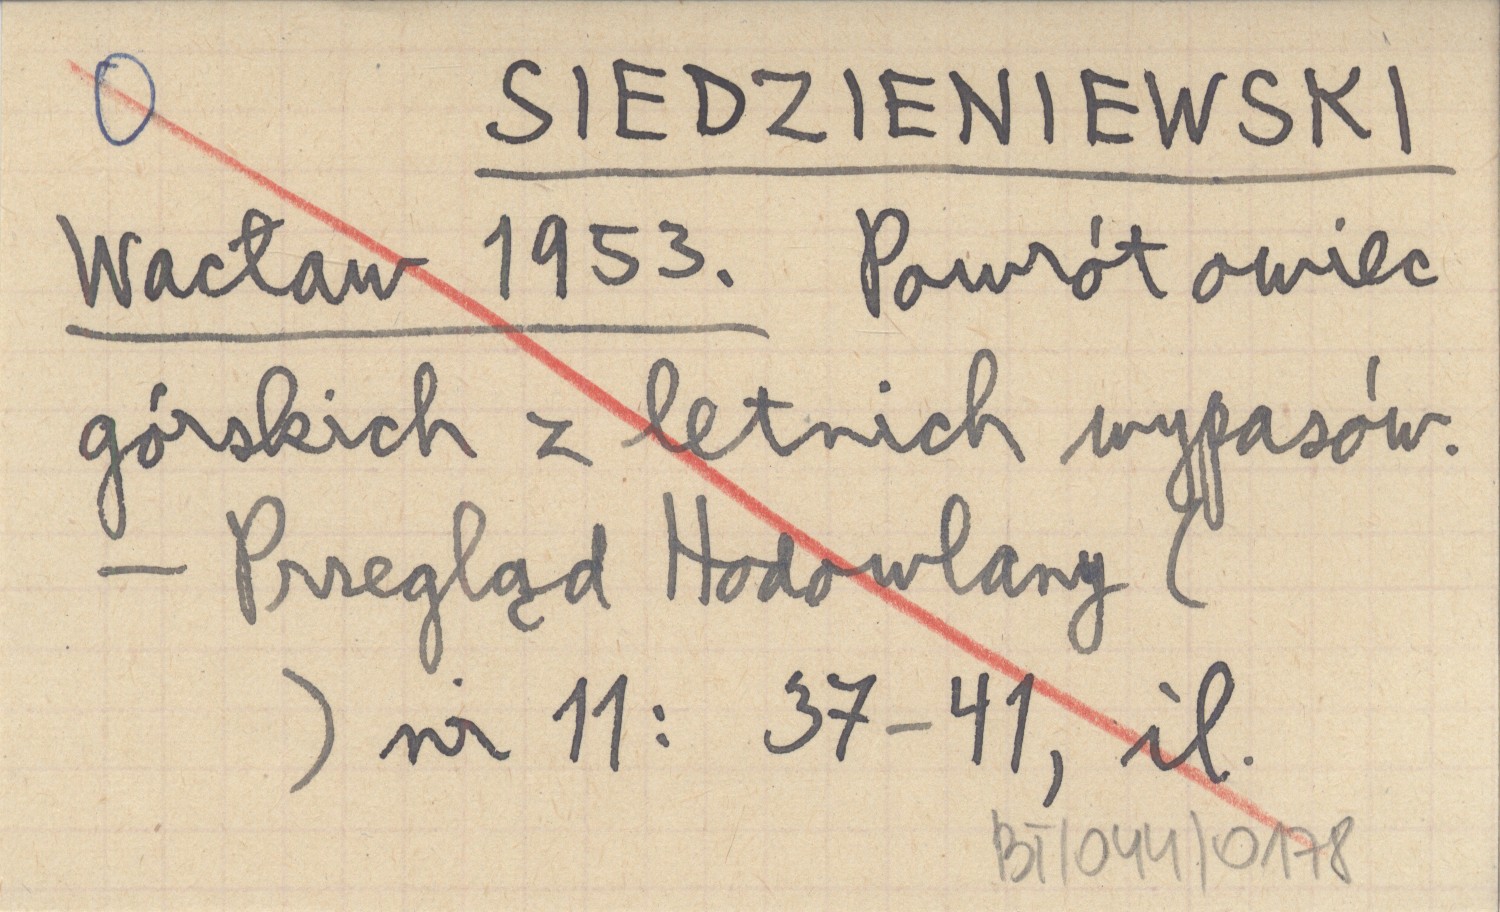 O SIEDZIENIEWSKI
Wacław 1953. Powrót owiec
górskich z letnich wypasów.
— Przegląd Hodowlany (
) nr 11: 37-41, il.
BT/044/0178